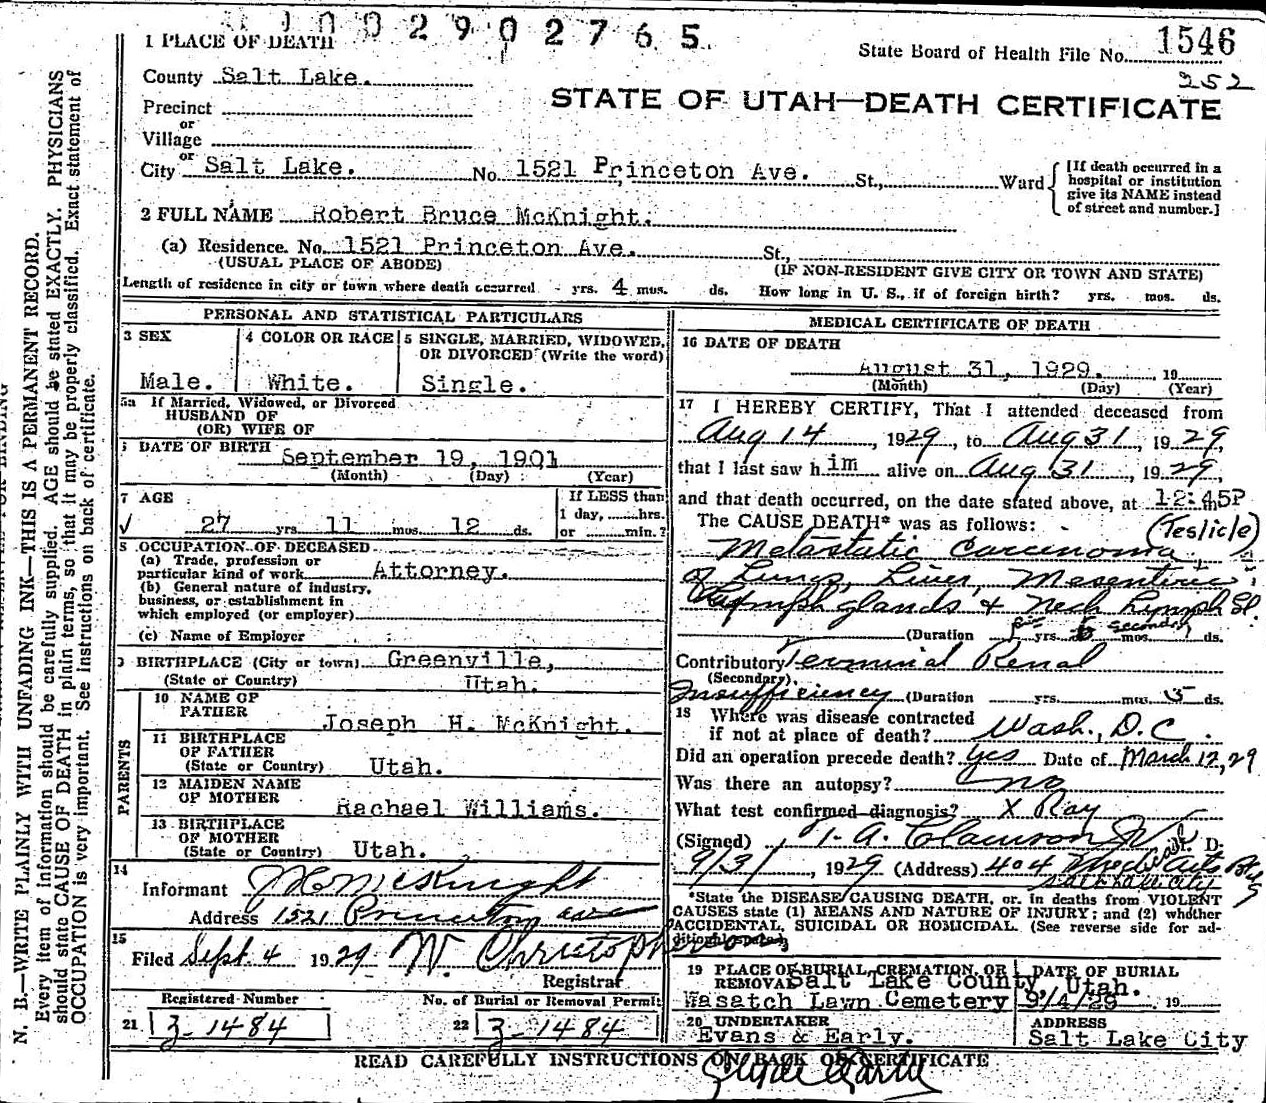 1 0 0 2 9 0 2 7 6 5
1 PLACE OF DEATH
State Board of Health File No. 1546
County Salt Lake.
252
STATE OF UTAH—DEATH CERTIFICATE
Precinct
or
Village
or
City Salt Lake. No. 1521 Princeton Ave. St., Ward
[If death occurred in a hospital or institution give its NAME instead of street and number.]
2 FULL NAME Robert Bruce McKnight.
(a) Residence. No. 1521 Princeton Ave. St.,
(USUAL PLACE OF ABODE) (IF NON-RESIDENT GIVE CITY OR TOWN AND STATE)
Length of residence in city or town where death occurred yrs. 4 mos. ds. How long in U. S., if of foreign birth? yrs. mos. ds.
PERSONAL AND STATISTICAL PARTICULARS
3 SEX
Male.
4 COLOR OR RACE
White.
5 SINGLE, MARRIED, WIDOWED, OR DIVORCED (Write the word)
Single.
5a If Married, Widowed, or Divorced
HUSBAND OF
(OR) WIFE OF
DATE OF BIRTH
September 19, 1901
(Month) (Day) (Year)
7 AGE
27 yrs 11 mos 12 ds.
If LESS than
1 day, hrs.
or min.?
8 OCCUPATION OF DECEASED
(a) Trade, profession or
particular kind of work Attorney.
(b) General nature of industry,
business, or establishment in
which employed (or employer)
(c) Name of Employer
9 BIRTHPLACE (City or town) Greenville,
(State or Country) Utah.
PARENTS
10 NAME OF
FATHER Joseph H. McKnight.
11 BIRTHPLACE
OF FATHER
(State or Country) Utah.
12 MAIDEN NAME
OF MOTHER Rachael Williams.
13 BIRTHPLACE
OF MOTHER
(State or Country) Utah.
14
Informant McKnight
Address 1521 Princeton ave
15
Filed Sept. 4 1929 W. Christopherson
Registrar
Registered Number
21 3-1484
No. of Burial or Removal Permit
22 3-1484
MEDICAL CERTIFICATE OF DEATH
16 DATE OF DEATH
August 31, 1929. 19
(Month) (Day) (Year)
17 I HEREBY CERTIFY, That I attended deceased from
Aug 14, 1929, to Aug 31, 1929,
that I last saw him alive on Aug 31, 1929,
and that death occurred, on the date stated above, at 12:45P m
The CAUSE DEATH* was as follows: (Testicle)
Metastatic Carcinoma
of Lungs, Liver, Mesenteric
Lymph glands & Neck Lymph Gl.
(Duration yrs. mos. ds.
Contributory Terminal Renal
(Secondary)
Insufficiency (Duration yrs. mos. 5 ds.
18 Where was disease contracted
if not at place of death? Wash., D.C.
Did an operation precede death? Yes Date of March 12, 29
Was there an autopsy? no
What test confirmed diagnosis? X Ray
(Signed) T. A. Clawson Jr M. D.
9/3/, 1929 (Address) 404 Medical Arts Bldg
Salt Lake City
*State the DISEASE CAUSING DEATH, or, in deaths from VIOLENT
CAUSES state (1) MEANS AND NATURE OF INJURY; and (2) whether
ACCIDENTAL, SUICIDAL OR HOMICIDAL. (See reverse side for ad-
ditional space.)
19 PLACE OF BURIAL, CREMATION, OR
REMOVAL Salt Lake County, Utah.
Wasatch Lawn Cemetery
DATE OF BURIAL
9/4/29 19
20 UNDERTAKER
Evans & Early.
ADDRESS
Salt Lake City
READ CAREFULLY INSTRUCTIONS ON BACK OF CERTIFICATE
N. B.—WRITE PLAINLY WITH UNFADING INK—THIS IS A PERMANENT RECORD.
Every item of information should be carefully supplied. AGE should be stated EXACTLY. PHYSICIANS
should state CAUSE OF DEATH in plain terms, so that it may be properly classified. Exact statement of
OCCUPATION is very important. See instructions on back of certificate.